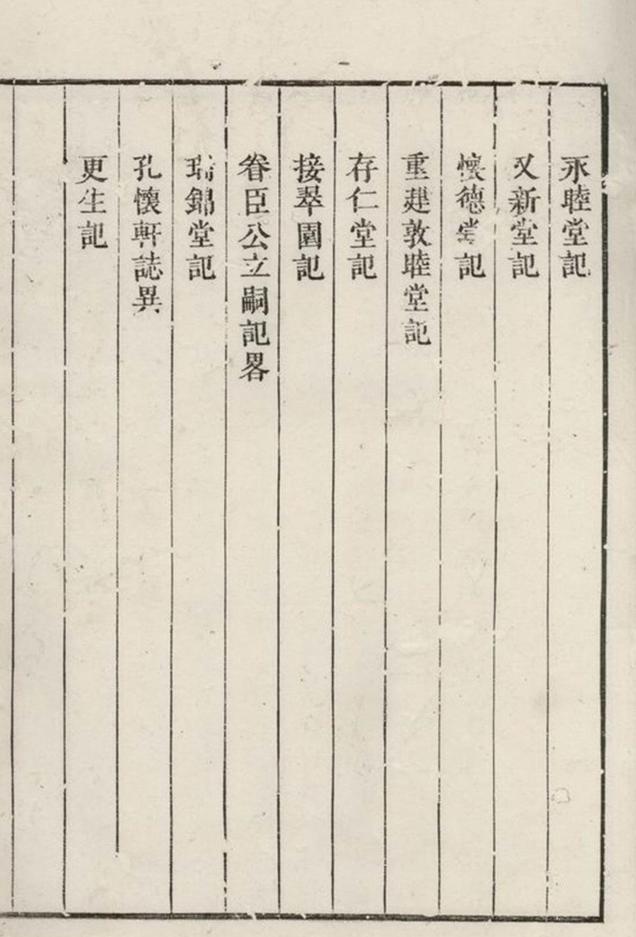 永睦堂記
又新堂記
懷德堂記
重建敦睦堂記
存仁堂記
接翠園記
眷臣公立嗣記畧
瑞錦堂記
孔懷軒誌異
更生記